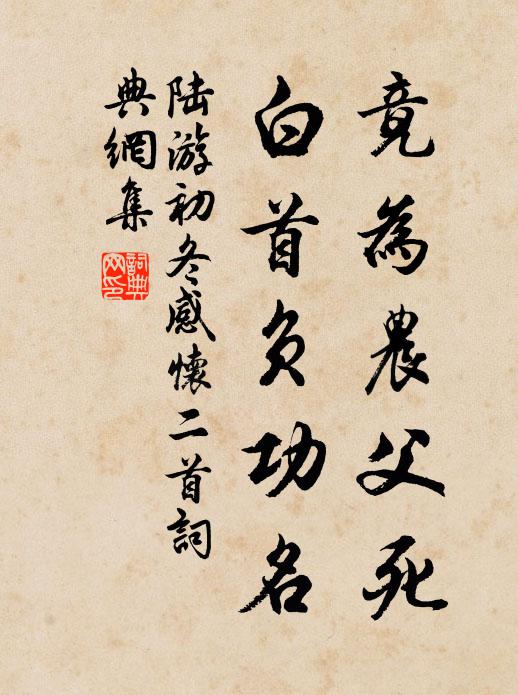 竟為農父死
白首負功名
陸游初冬感懷二首詞
典網集
詞典網印